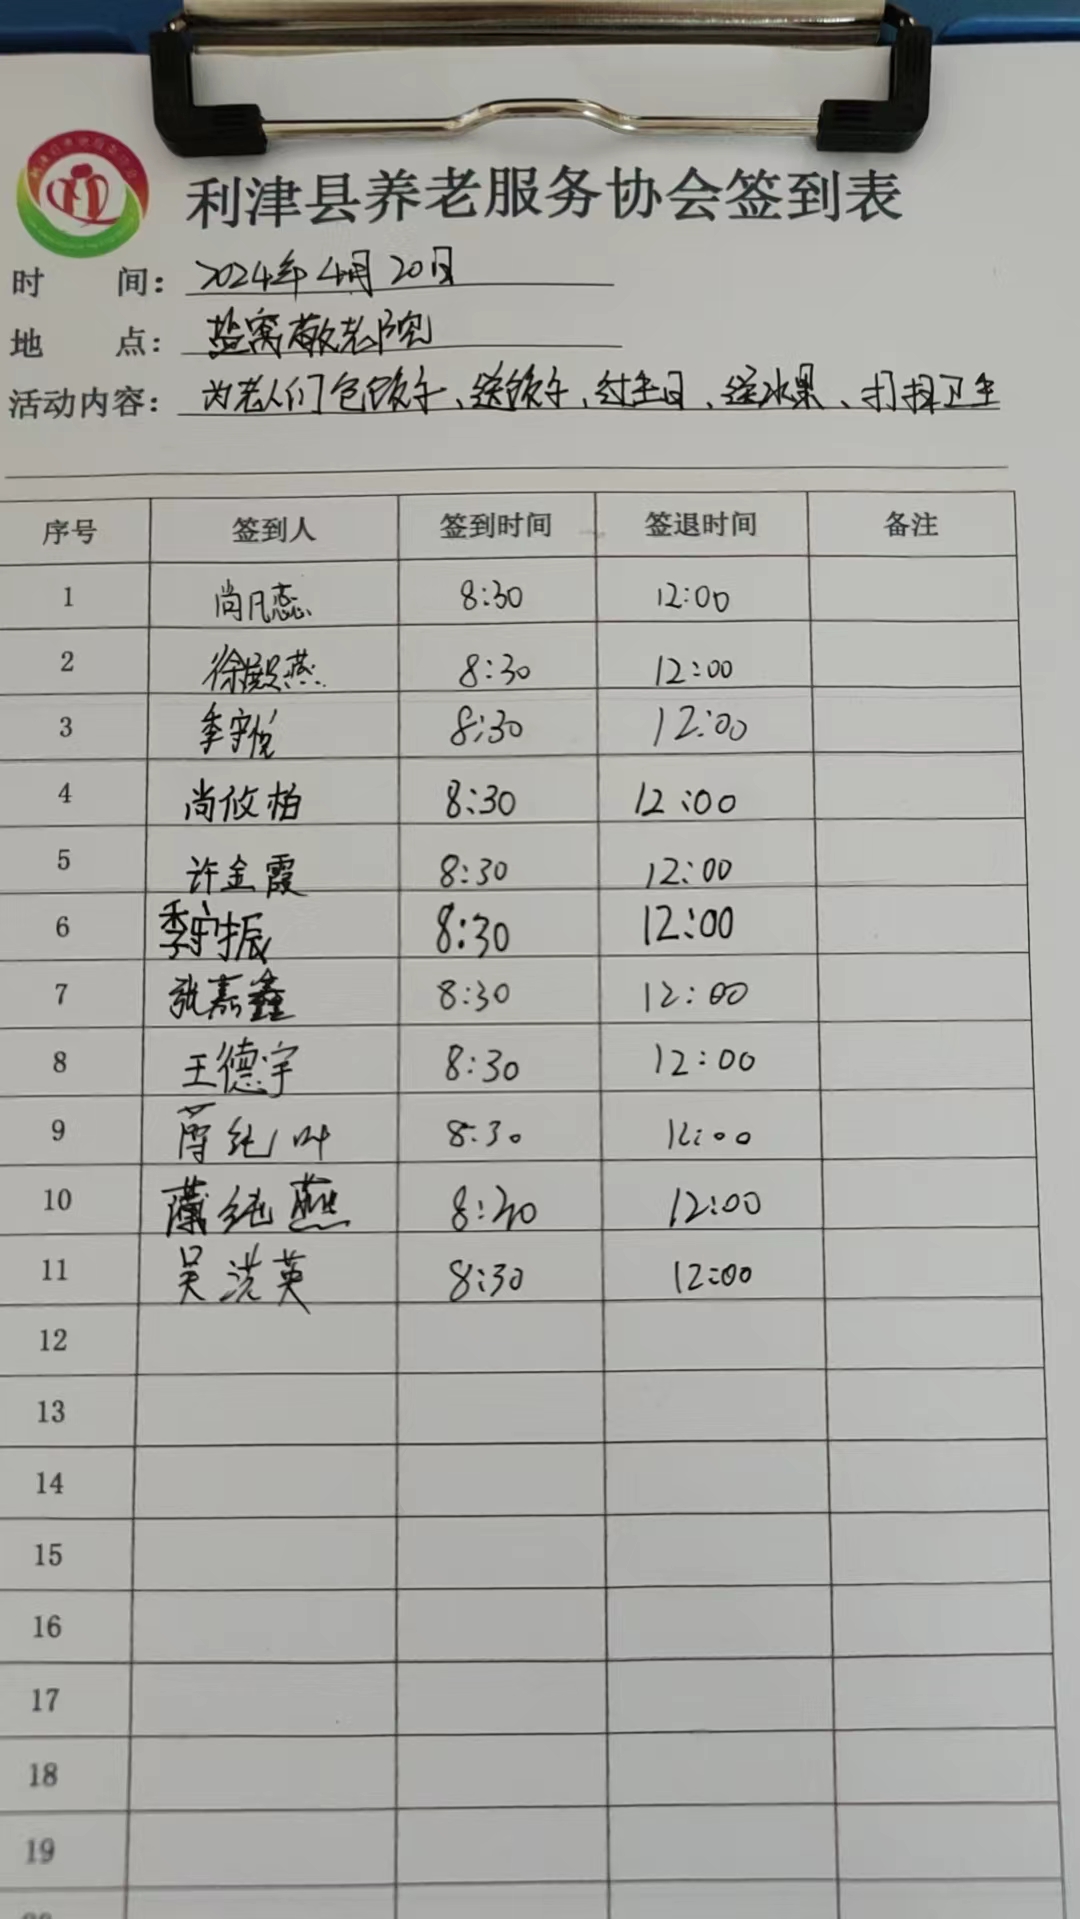 利津县养老服务协会签到表
时 间: 2024年4月20日
地 点: 盐窝敬老院
活动内容: 为老人们包饺子、送饺子、过生日、送水果、打扫卫生
序号 签到人 签到时间 签退时间 备注
1 尚凡蕊 8:30 12:00
2 徐殿燕 8:30 12:00
3 李守悦 8:30 12:00
4 尚攸柏 8:30 12:00
5 许金霞 8:30 12:00
6 李守振 8:30 12:00
7 张嘉鑫 8:30 12:00
8 王德宇 8:30 12:00
9 纯叶 8:30 12:00
10 纯燕 8:30 12:00
11 吴洪英 8:30 12:00
12
13
14
15
16
17
18
19